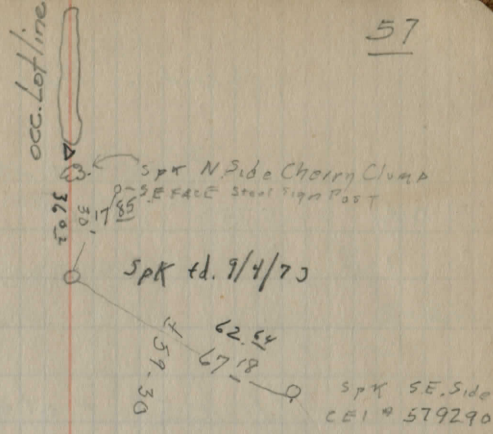 57
occ. Lot line
Spk N. Side Cherry Clump
S.E FACE Steel Sign Post
36.03
30'
17/85
Spk fd. 9/4/73
62.64
67.18
± 59.30
Spk S.E. Side
CEI # 579290